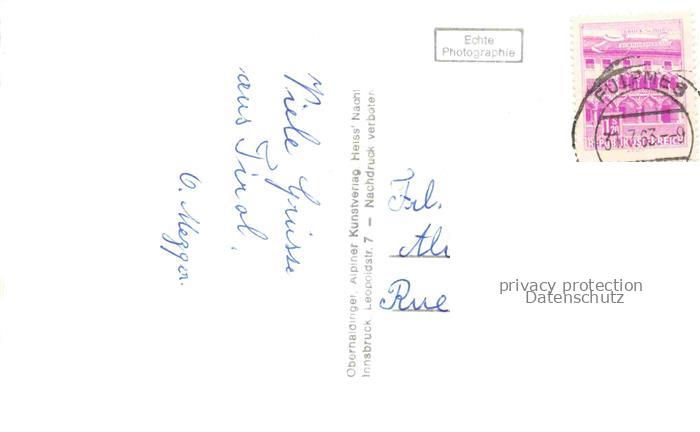 Echte
Photographie
Viele Grüsse
aus Tirol.
Obernaidinger, Alpiner Kunstverlag Heiss' Nachf
Innsbruck Leopoldstr. 7 — Nachdruck verboten
Frl.
Rue
privacy protection
Datenschutz
FULPMES
REPUBLIK ÖSTERREICH